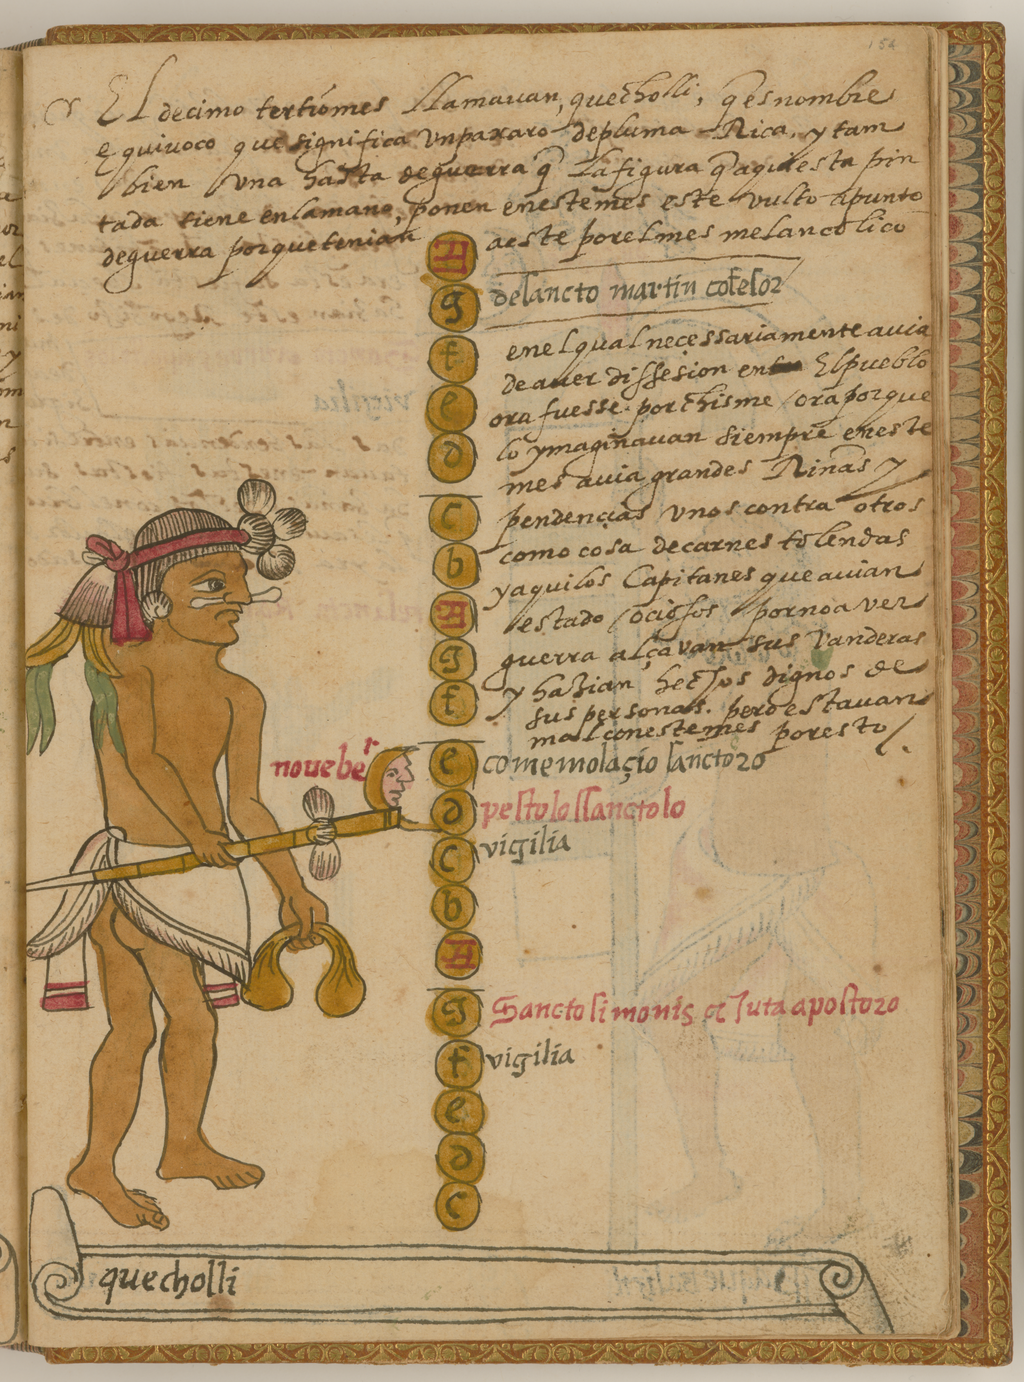 154
El decimo tertiomes llamavan, quecholli, q̃ es nombre
equivoco que significa Un paxaro de pluma Rica, y tam
bien Una hasta de guerra q̃ la figura q̃ aqui esta pin
tada tiene enlamano, ponen enestemes este vulto apunto
deguerra porquetenian aeste porelmes melancolico
A
g
delancto martin cōfesor
f
e
d
c
b
A
g
f
enelqual necessariamente avia
de aver dissesion en El pueblo
ora fuesse por chisme / ora porque
lo ymaginavan siempre eneste
mes avia grandes Rinas y
pendencias unos contra otros
como cosa decarnestolendas
yaquilos Capitanes que avian
estado ociosos por no aver
guerra alçavan sus Vanderas
y hazian hechos dignos de
sus personas. pero estavan
mal conestemes poresto /.
e
comemolaçio sanctoro
noueber
d
pestolo sanctolo
c
vigilia
b
A
g
Sancto simonis et Juta apostoro
f
vigilia
e
d
c
quecholli